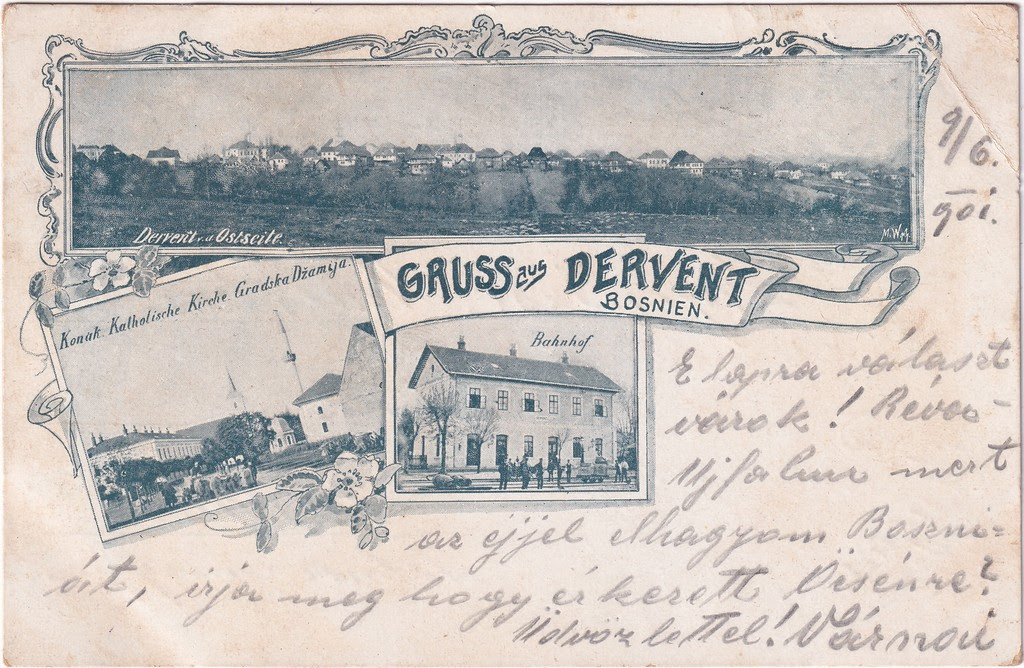 Dervent v. d. Ostseite.
M. W.
9/6.
901.
GRUSS aus DERVENT
BOSNIEN.
Konák. Katholische Kirche. Gradska Džamija.
Bahnhof
E lapra választ
várok! Réva-
Ujfaluu mert
az éjjel elhagyom Boszni-
át, irja meg hogy érkezett
Üdvözlettel!